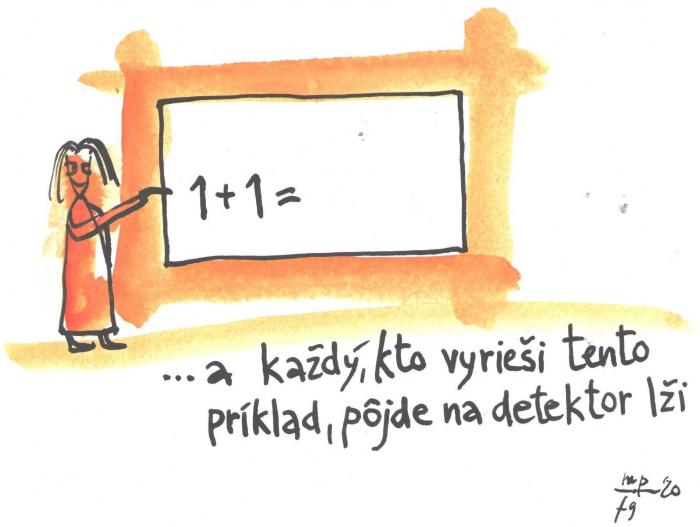 1+1=
...a každý, kto vyrieši tento
príklad, pôjde na detektor lží
mp
fg '20